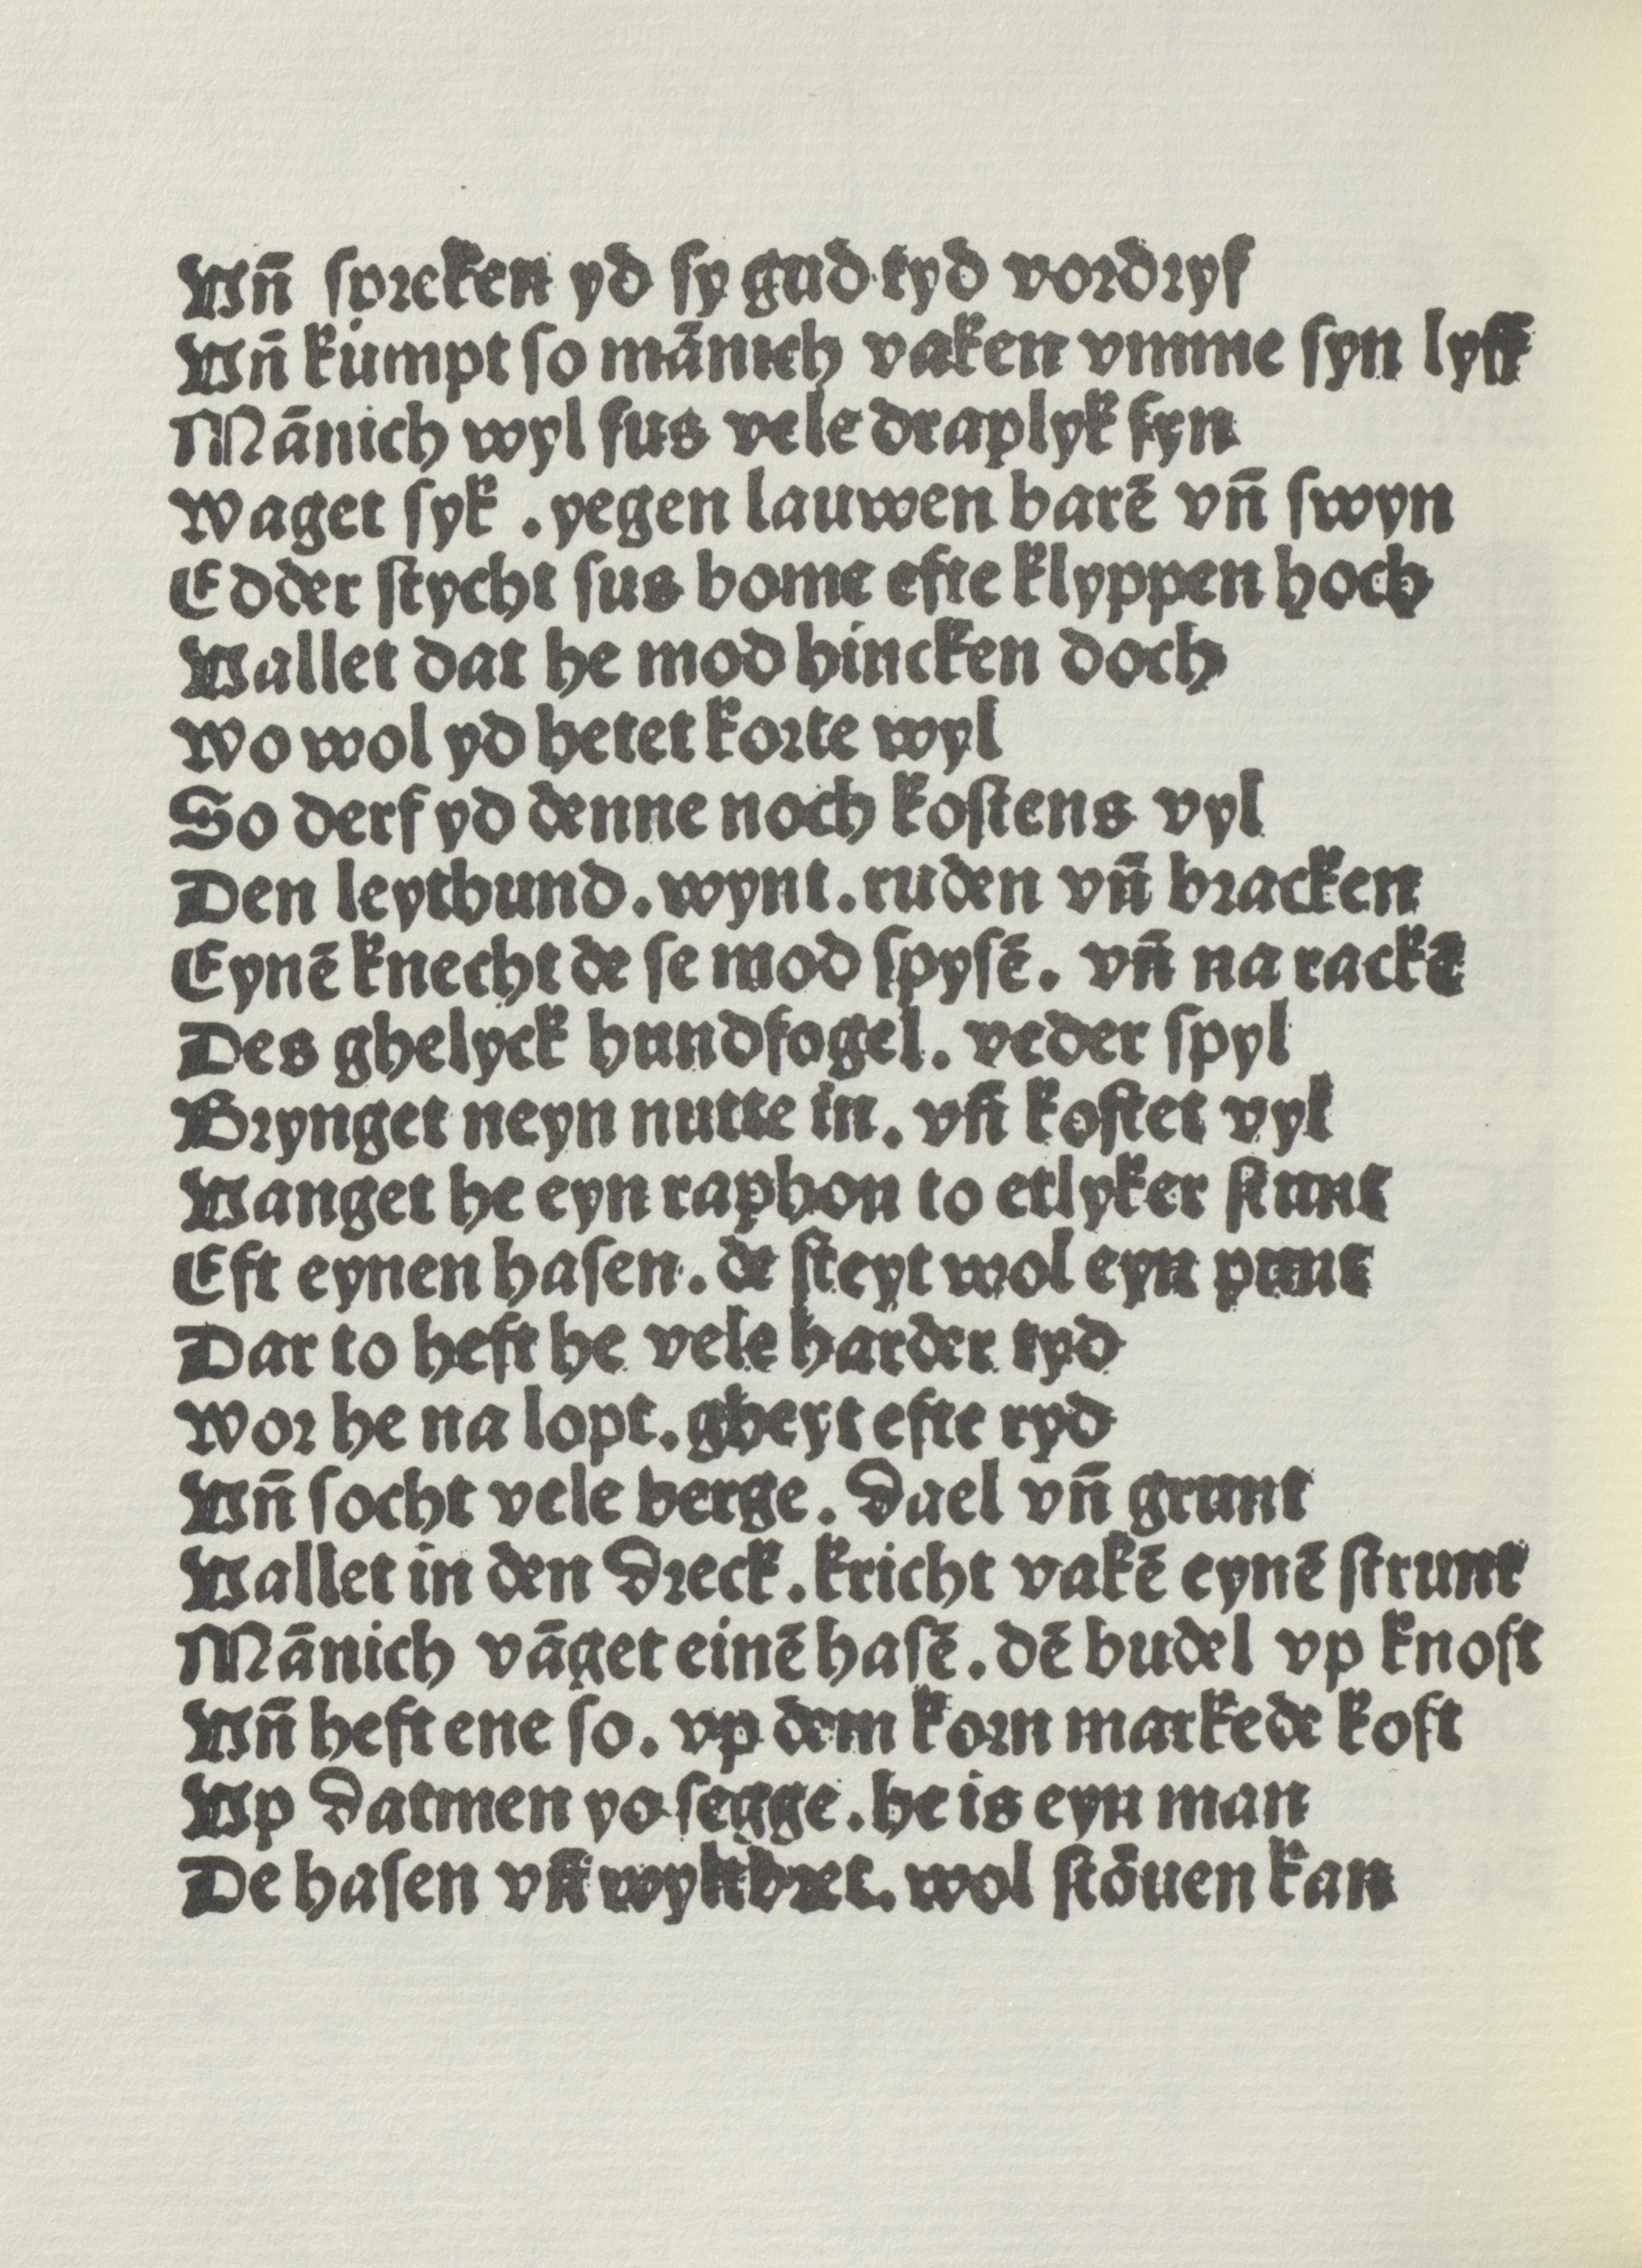 Vnn̄ spreken yd sy gud tyd vordryf
Vn̄ kumpt so mānich vaken vmme syn lyff
Mānich wyl sus vele draplyk syn
Waget syk . yegen lauwen barē vn̄ swyn
Edder stycht sus bome efte klyppen hoch
Vallet dat he mod hincken doch
Wo wol yd hetet korte wyl
So derf yd denne noch kostens vyl
Den leythund . wynt . ruden vn̄ bracken
Eynē knecht de se mod spysē . vn̄ na rackē
Des ghelyck hundfogel . veder spyl
Brynget neyn nutte in . vn̄ kostet vyl
Vanget he eyn raphon to etlyker stunt
Eft eynen hasen . de steyt wol eyn punt
Dar to heft he vele harder tyd
Wor he na lopt . gheyt efte ryd
Vn̄ socht vele berge . dael vn̄ grunt
Vallet in den dreck . kricht vakē eynē strunt
Mānich vāget einē hasē . dē budel vp knoft
Vn̄ heft ene so . vp dem korn markede koft
Vp datmen yo segge . he is eyn man
De hasen vn̄ wyltbret . wol stōuen kan